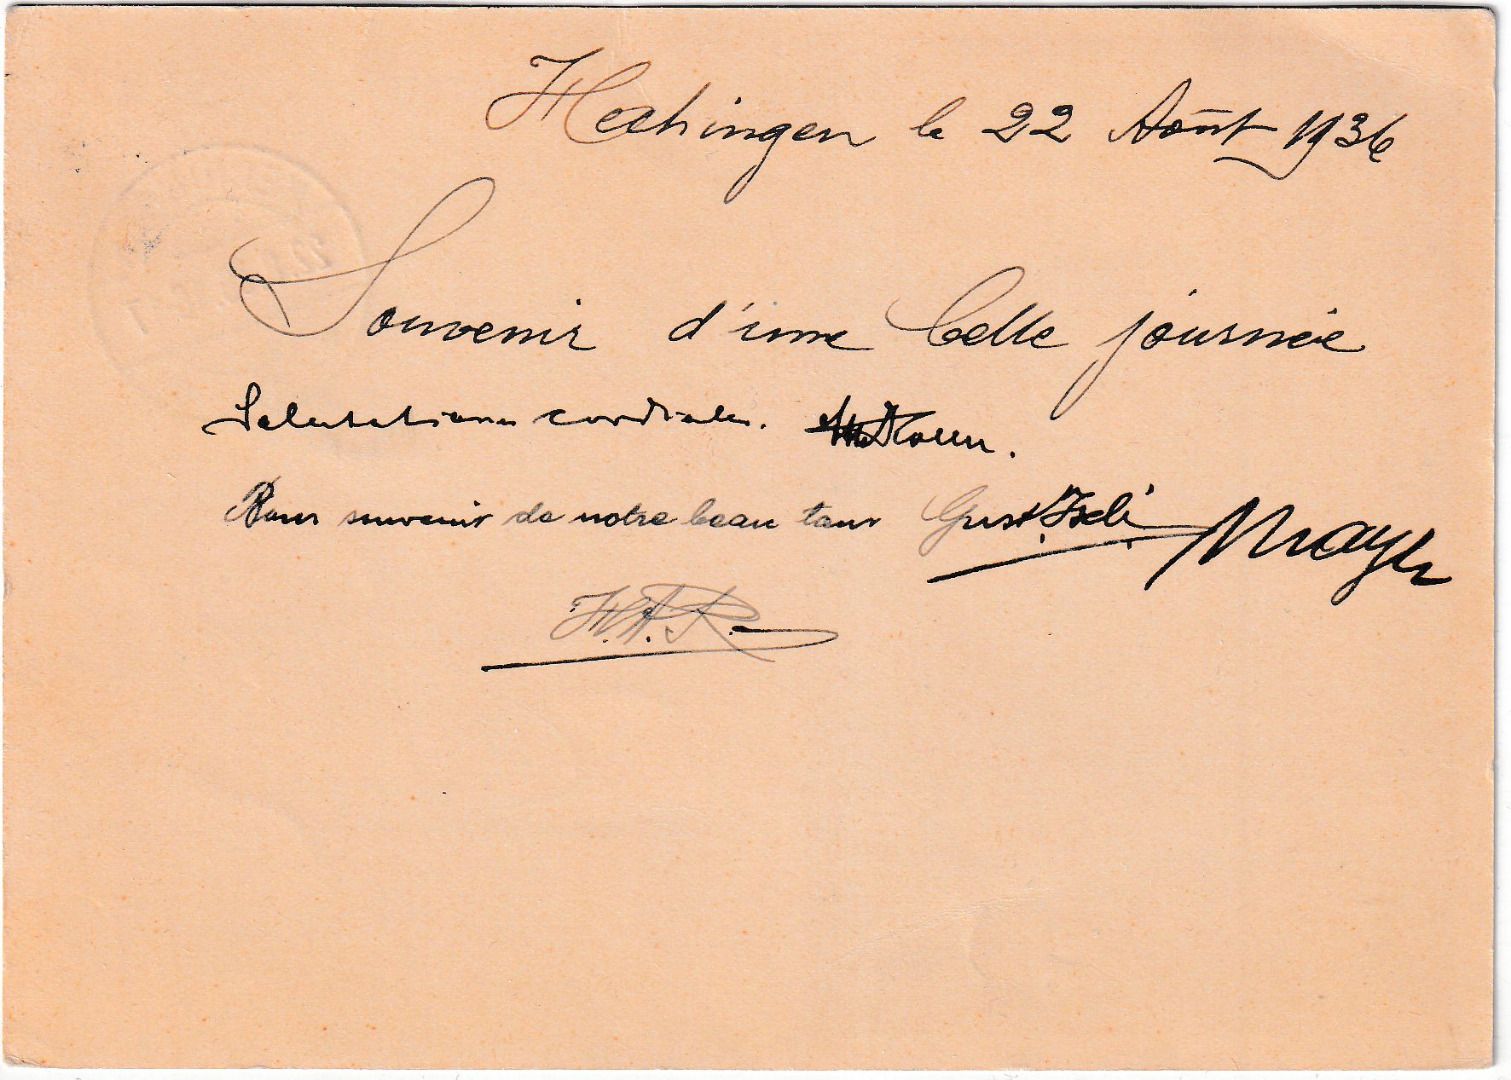 Hechingen le 22 Août 1936
Souvenir d'une belle journée
Salutations cordiales.
Pour souvenir de notre beau tour Gust. Iseli Mayer
H.A.R.